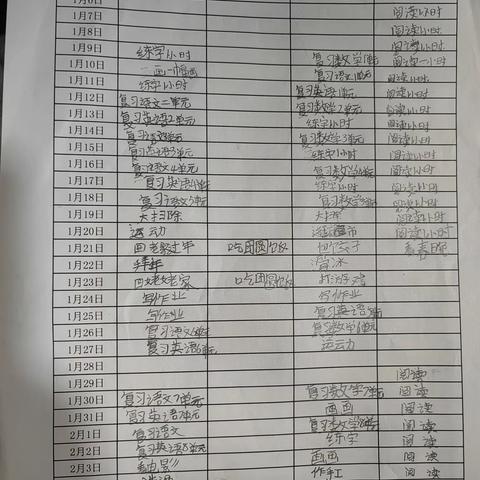 1月6日
1月7日 阅读1小时
1月8日 阅读1小时
1月9日 练字1小时 阅读1小时
1月10日 画一幅画 复习数学1单元 阅读一小时
1月11日 练字1小时 复习语文1单元 阅读1小时
1月12日 复习语文二单元 复习英语1单元 阅读1小时
1月13日 复习英语2单元 复习数学2单元 阅读1小时
1月14日 复习 单元 练字1小时 阅读1小时
1月15日 复习语文3单元 复习数学3单元 阅读1小时
1月16日 复习语文4单元 练字1小时 阅读1小时
1月17日 复习英语4单元 复习数学4单元 阅读1小时
1月18日 复习语文5单元 练字1小时 阅读1小时
1月19日 大扫除 复习数学 单元 阅读1小时
1月20日 运动 大扫除 阅读1小时
1月21日 回老家过年 吃团圆饭 包饺子 看春晚
1月22日 拜年 滑冰
1月23日 回姥姥家 吃团圆饭 打游戏
1月24日 写作业 写作业
1月25日 写作业 复习英语 单元
1月26日 复习语文6单元 复习数学6单元
1月27日 复习英语6单元 运动
1月28日
1月29日 阅读
1月30日 复习语文7单元 复习数学7单元 阅读
1月31日 复习英语7单元 画画 阅读
2月1日 复习语文 复习数学8单元 阅读
2月2日 复习英语8单元 练字 阅读
2月3日 画画 阅读
手工 阅读